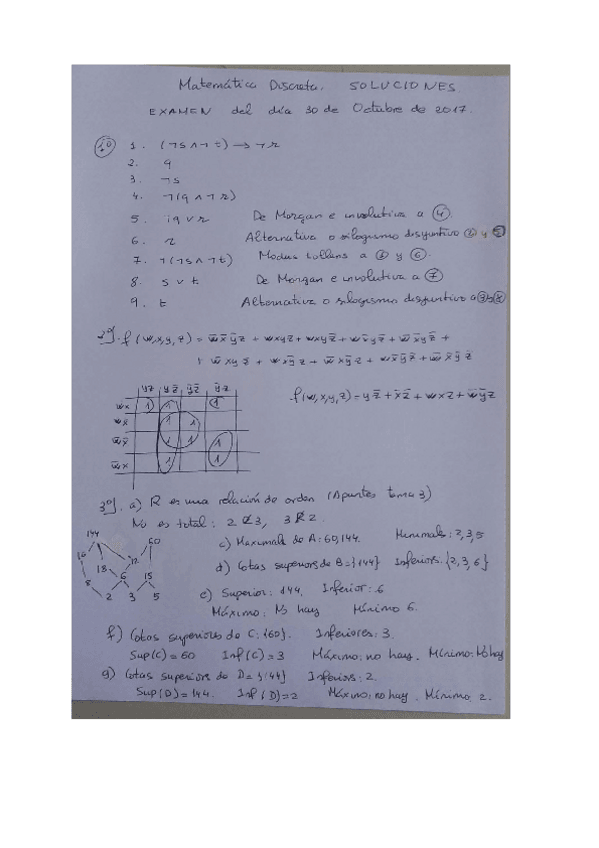 Matemática Discreta. SOLUCIONES.
EXAMEN del día 30 de Octubre de 2017.
1º) 1. (¬s∧¬t) → ¬r
2. q
3. ¬s
4. ¬(q ∧ ¬r)
5. ¬q ∨ r De Morgan e involutiva a (4).
6. r Alternativa o silogismo disyuntivo (2) y (5)
7. ¬(¬s∧¬t) Modus tollens a (1) y (6).
8. s ∨ t De Morgan e involutiva a (7)
9. t Alternativa o silogismo disyuntivo a (3) y (8)
2º). f(w,x,y,z) = w̄x̄ȳz + wxyz + wxyz̄ + wx̄yz̄ + w̄x̄yz̄ +
f(w,x,y,z) = yz̄ + x̄z̄ + wxz + w̄ȳz
yz yz̄ ȳz̄ ȳz
wx 1 1 1
wx̄ 1 1
w̄x̄ 1 1 1
w̄x 1 1
3º). a) R es una relación de orden (Apuntes tema 3)
No es total: 2 R̸ 3, 3 R̸ 2.
144 60
16 18 12
8 6 15
2 3 5
c) Maximals de A: 60, 144. Minimals: 2, 3, 5
d) Cotas superiors de B = {144} Inferiors: {2, 3, 6}
e) Superior: 144. Inferior: 6
Máximo: No hay Mínimo 6.
f) Cotas superiores de C: {60}. Inferiores: 3.
Sup(C) = 60 Inf(C) = 3 Máximo: no hay. Mínimo: No hay
g) Cotas superiors de D = {144} Inferiors: 2.
Sup(D) = 144. Inf(D) = 2 Máximo: no hay. Mínimo: 2.